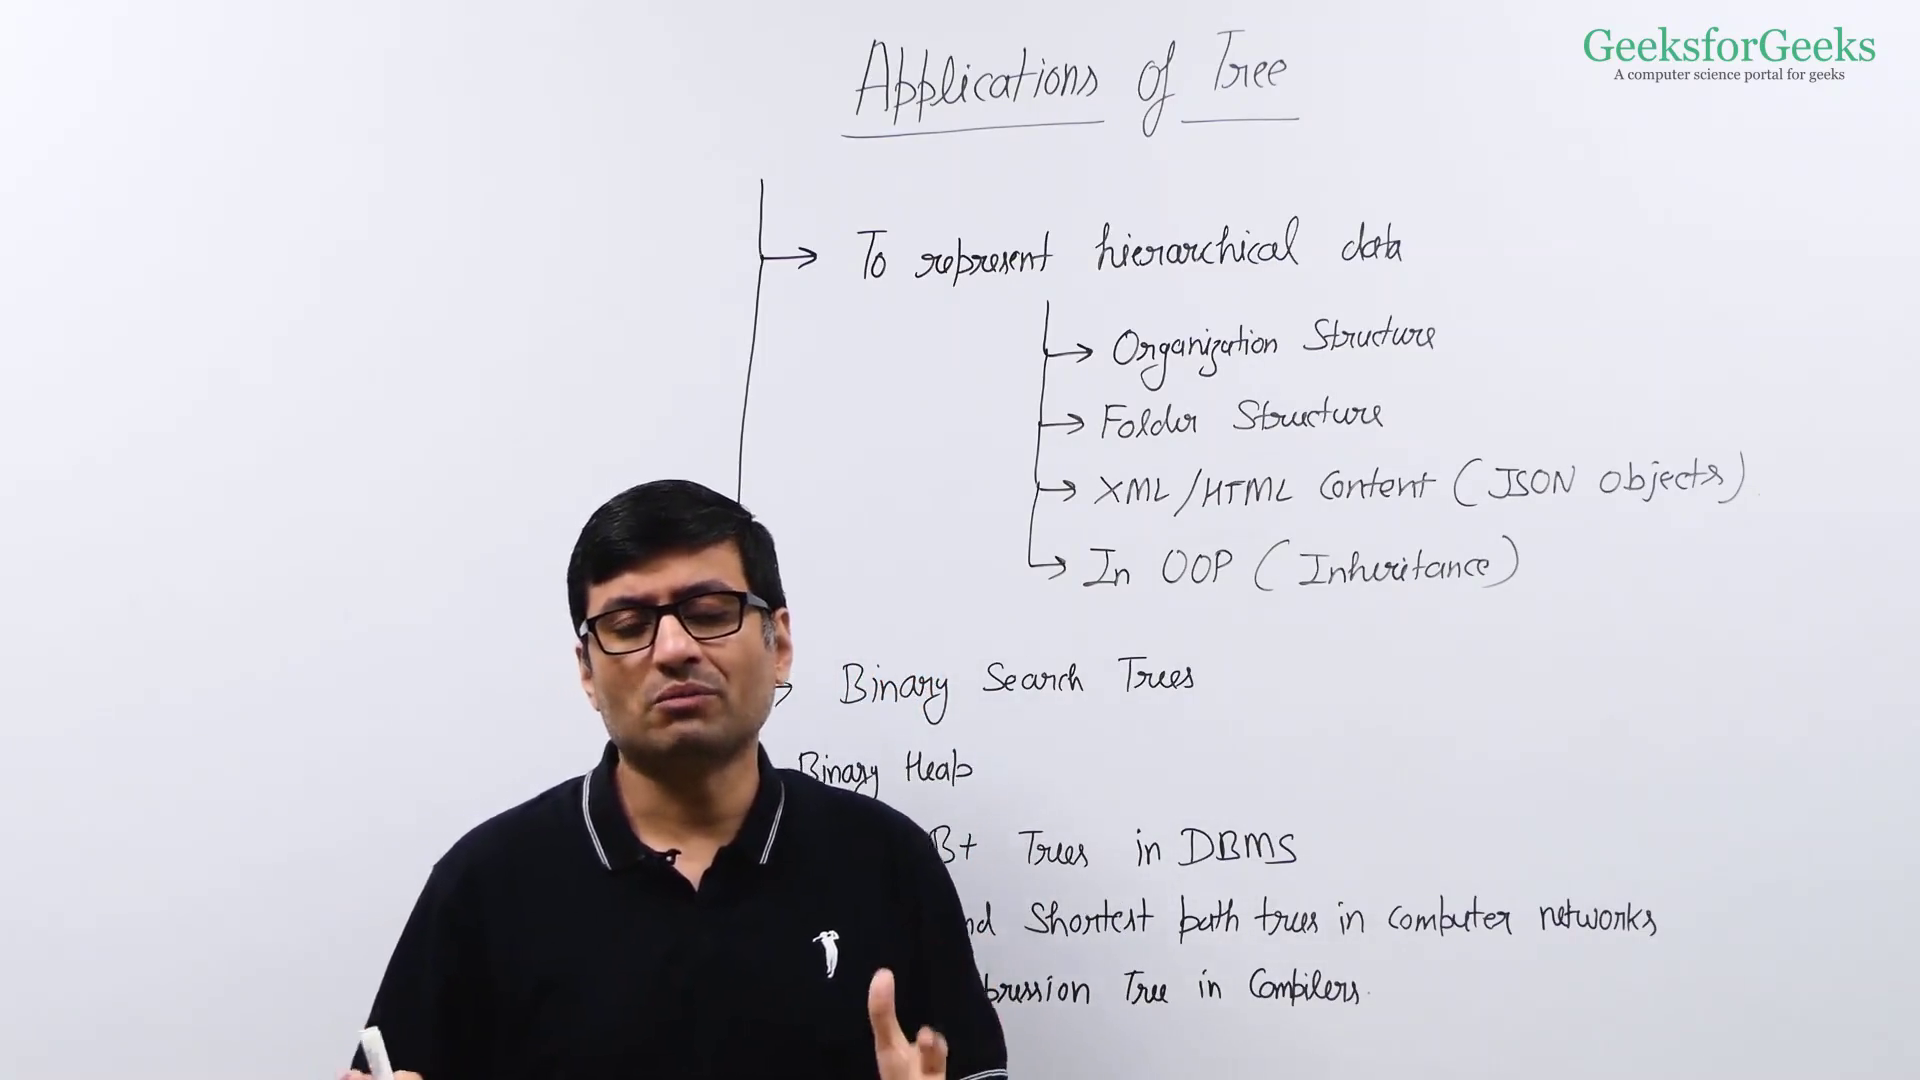 GeeksforGeeks
A computer science portal for geeks
Applications of Tree
To represent hierarchical data
Organization Structure
Folder Structure
XML/HTML Content (JSON Objects)
In OOP (Inheritance)
Binary Search Trees
Binary Heap
B+ Trees in DBMS
Shortest path trees in computer networks
Tree in Compilers.